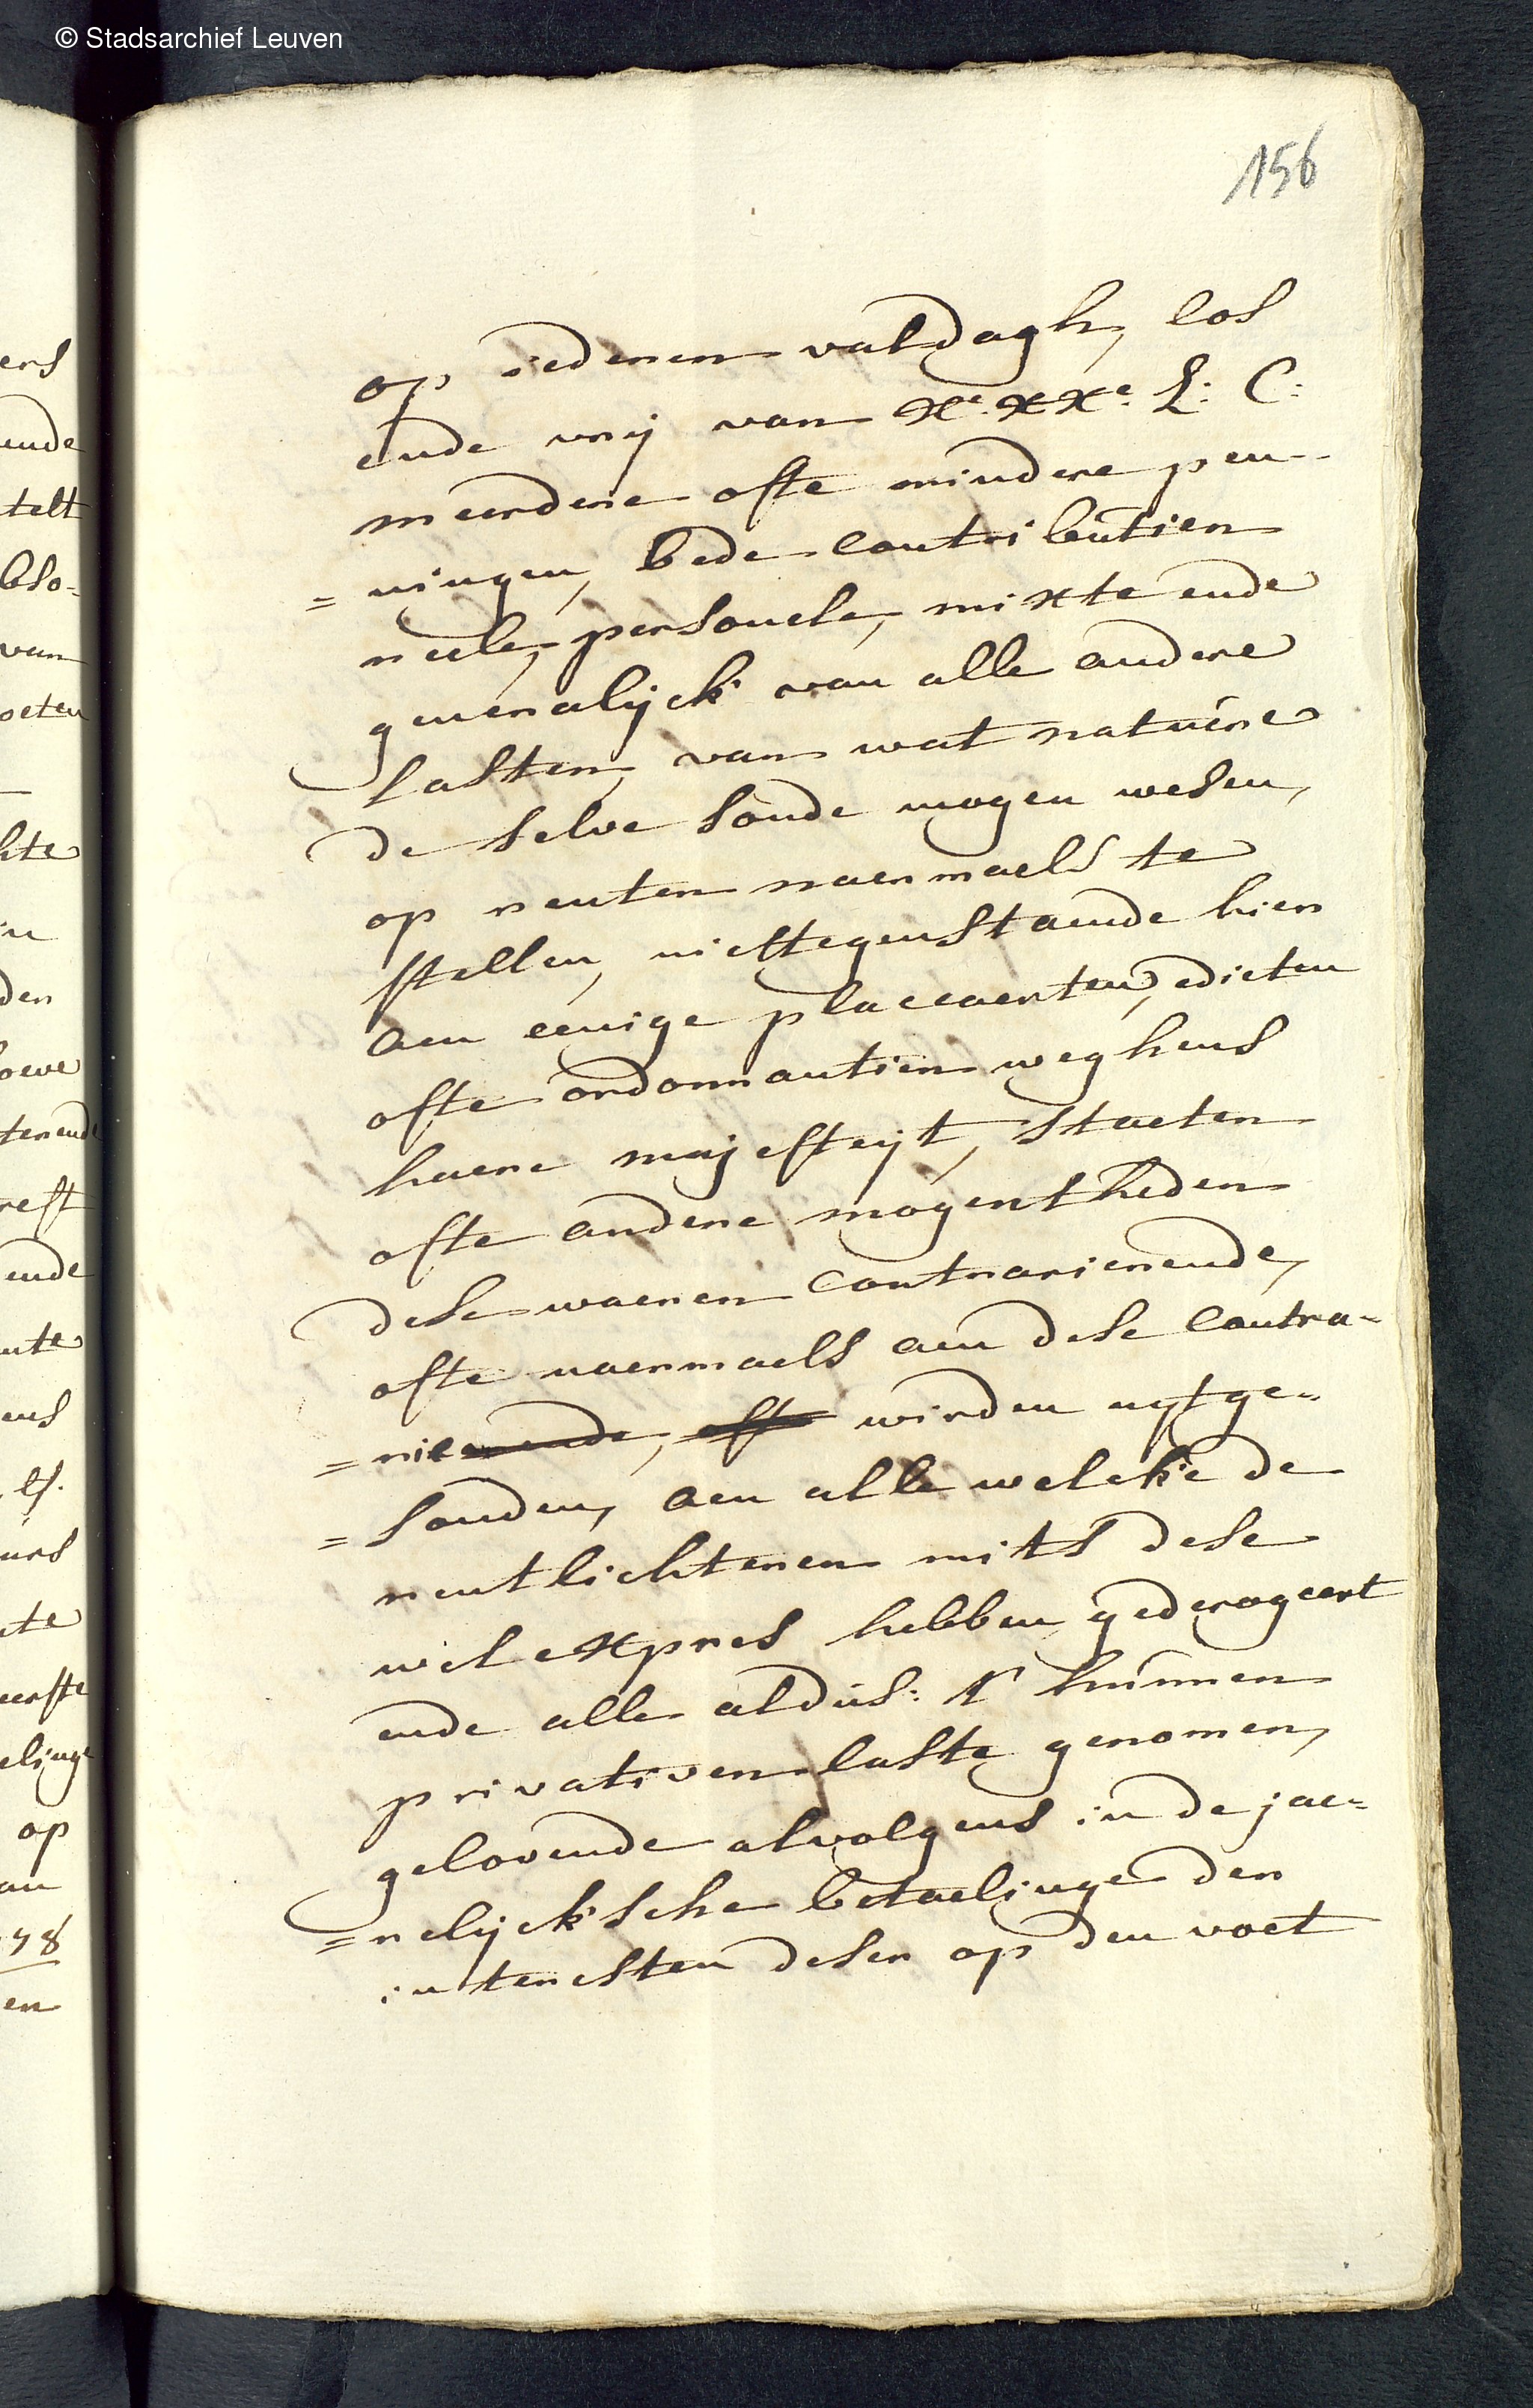 © Stadsarchief Leuven
156
op iederen valdagh, los
ende vrij van Xe. XXe. L: C:
meerdere ofte mindere pen-
=ningen, bede contributien
reele, personele, mixte ende
generalijck van alle andere
lasten, van wat natuere
de selve soude mogen wesen,
op renten naermaels te
stellen, niettegenstaende hier
aen eenige placcaerten, edicten
ofte ordonnantien weghens
haere majesteijt, staeten
ofte andere mogentheden
dese waeren contrarierende,
ofte naermaels aen dese contra-
=rie wirden uytge-
=sonden, aen alle welcke de
rentlichteren mits dese
wel expres hebben gederogeert
ende alle aldus: t' hunnen
privativen laste genomen,
gelovende alvolgens in de jae-
=relijcksche betaelinge der
intresten deser op den voet